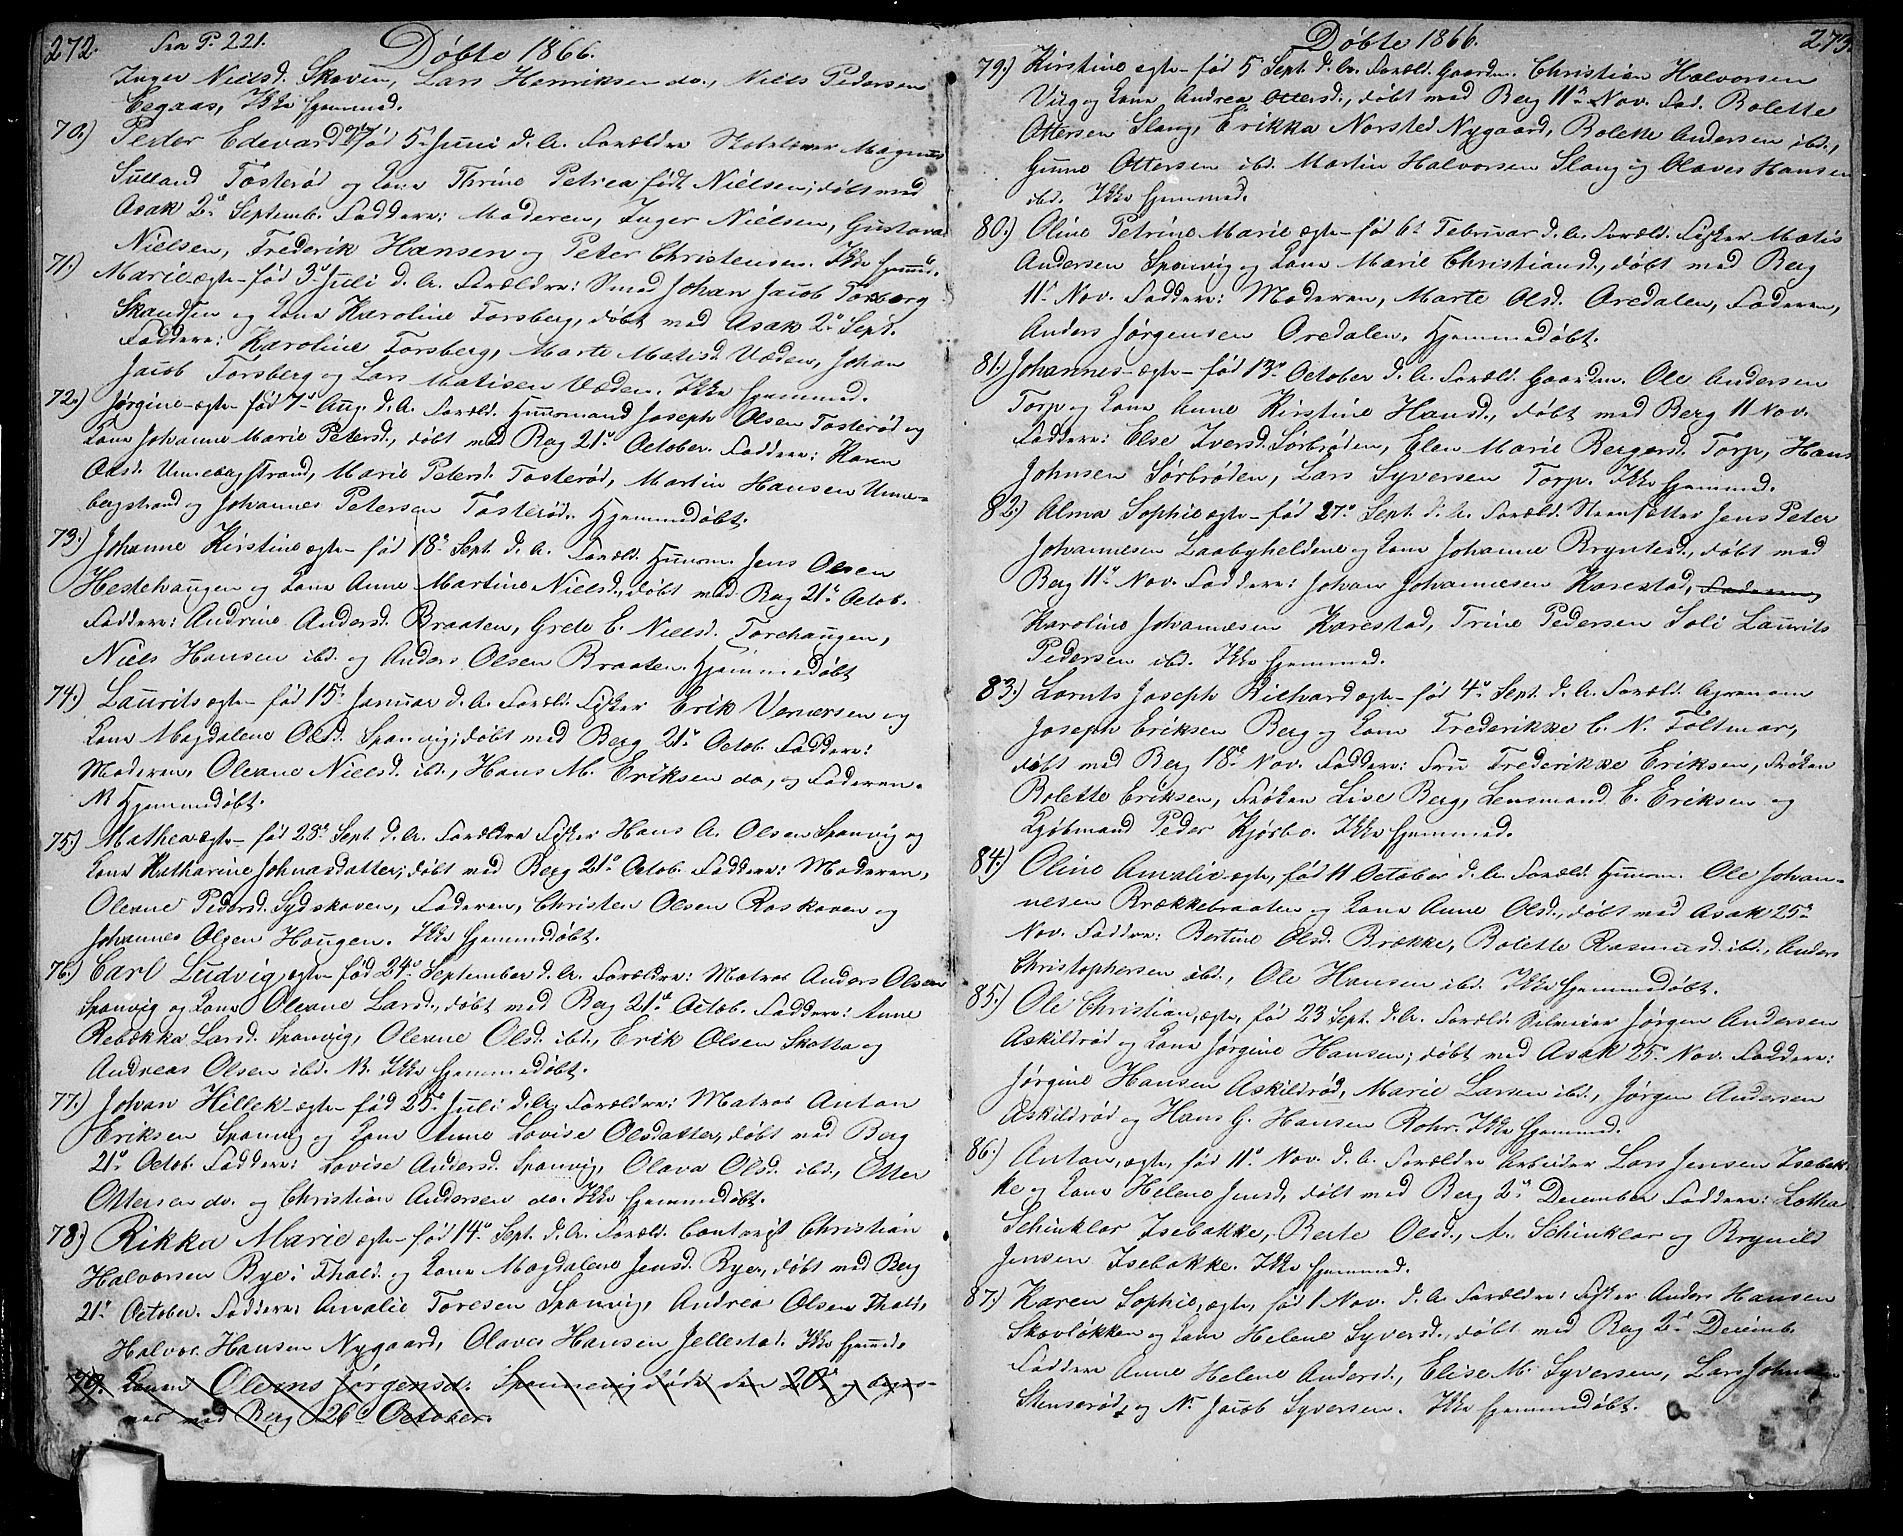 272. Fra P. 221. Døbte 1866.
Inger Nielsd. Skoven, Lars Henriksen do., Niels Pedersen
Eegaas, Ikke hjemmed.
70.) Peder Edevard, ægte født 5te Juni d. A. Forældre Magnus
Sulland Tosterød og Kone Thrine Petrea født Nielsen, døbt ved
Asak 2d Septemb. Faddere: Moderen, Inger Nielsen, Gustava
Nielsen, Frederik Hansen og Peter Christensen. Ikke hjemd.
71.) Marie ægte født 3d Juli d. A. Forældre: Smed Johan Jacob Forsberg
og Kone Karoline Forsberg, døbt ved Asak 2d Sept.
Faddere: Karoline Forsberg, Marte Matisd. Veden, Johan
Jacob Forsberg og Lars Matisen Veden. Ikke hjemmed.
72.) Jørgine ægte født 7de Aug. d. A. Foræld. Huusmand Joseph Olsen Tosterød og
Kone Johanne Marie Petersd., døbt ved Berg 21d October. Faddere: Karen
Olsd. Unnebergstrand, Marie Petersd. Tosterød, Martin Hansen Unne-
bergstrand og Johannes Petersen Tosterød. Hjemmedøbt.
73.) Johanne Kirstine ægte født 18d Sept. d. A. Foræld. Huusm. Jens Olsen
Hestehaugen og Kone Anne Martine Nielsd., døbt ved Berg 21d Octob.
Faddere: Andrine Andersd. Braaten, Grete E. Nielsd. Torehaugen,
Niels Hansen ibd. og Anders Olsen Braaten. Hjemmedøbt
74.) Laurits ægte født 15d Januar d. A. Foræld. Fisker Erik Vernersen og
Kone Magdalene Olsd. Sponvig, døbt ved Berg 21d Octob. Faddere:
Moderen, Oleane Nielsd. ibd., Hans M. Eriksen do, og Faderen.
Hjemmedøbt.
75.) Mathea ægte født 23d Sept. d. A. Forældre Fisker Hans A. Olsen Sponvig og
Kone Katharine Johnasdatter, døbt ved Berg 21d Octob. Faddere: Moderen,
Oleane Pedersd. Sydskoven, Faderen, Christen Olsen Roskoven og
Johannes Olsen Haugen. Ikke hjemmedøbt.
76.) Carl Ludvig, ægte født 24d September d. A. Forældre: Matros Anders Olsen
Sponvig og Kone Oleane Larsd., døbt ved Berg 21d Octob. Faddere: Anne
Rebækka Larsd. Sponvig, Oleane Olsd. ibd., Erik Olsen Skotta og
Andreas Olsen ibd. Ikke hjemmedøbt.
77.) Johan Hillek ægte født 25d Juli d. A. Forældre: Matros Anton
Eriksen Sponvig og Kone Anne Lovise Olsdatter, døbt ved Berg
21d Octob. Faddere: Lovise Andersd. Sponvig, Olava Olsd. ibd., Otter
Ottersen do. og Christian Andersen do. Ikke hjemmedøbt.
78.) Rikka Marie ægte født 14d Sept. d. A. Foræld. Contorist Christian
Halvorsen Bye i Thald. og Kone Magdalene Jensd. Bye, døbt ved Berg
21d October. Faddere: Amalie Toresen Sponvig, Andrea Olsen Thald,
Halvor Hansen Nygaard, Olaves Hansen Jellestad. Ikke hjemmed.
79. Kone Oleane Jørgensd. Sponnevig døde den 20d og
ved Berg 26d October.
Døbte 1866. 273.
79.) Kirstine ægte født 5 Sept. d. A. Foræld. Gaardm. Christian Halvorsen
Viig og Kone Andrea Ottersd., døbt ved Berg 11te Nov. Fad. Bolette
Ottersen Slang, Erikka Norsted Nygaard, Bolette Andersen ibd.,
Gunno Ottersen ibd. Martin Halvorsen Slang og Olaves Hansen
ibd. Ikke hjemmed.
80.) Oline Petrine Marie ægte født 6te Februar d. A. Foræld. Fisker Matis
Andersen Sponvig og Kone Marie Christiansd., døbt ved Berg
11te Nov. Faddere: Moderen, Marte Olsd. Oredalen, Faderen,
Anders Jørgensen Oredalen. Hjemmedøbt.
81.) Johannes ægte født 13d October d. A. Foræld. Gaardm. Ole Andersen
Torp og Kone Anne Kirstine Hansd., døbt ved Berg 11 Nov.
Faddere: Else Iversd. Sørbrøden, Elen Marie Bergersd. Torp, Hans
Johnsen Sørbrøden, Lars Syversen Torp. Ikke hjemmed.
82.) Alma Sophie ægte født 27d Sept. d. A. Foræld. Steensætter Jens Peter
Johannesen Laabyheldene og Kone Johanne Bryntesd., døbt ved
Berg 11te Nov. Faddere: Johan Johannesen Karestad, Faderen,
Karoline Johannesen Karestad, Trine Pedersen Soli Laurits
Pedersen ibd. Ikke hjemmed.
83.) Lornts Joseph Richard ægte født 4d Sept. d. A. Foræld. Agronom
Joseph Eriksen Berg og Kone Frederikke C. N. Foltmar,
døbt ved Berg 18d Nov. Faddere: Fru Frederikke Eriksen, Frøken
Bolette Eriksen, Frøken Live Berg, Lensmand E. Eriksen og
Kjøbmand Peder Kjørbo. Ikke hjemmed.
84.) Oline Amalie ægte, født 11 October d. A. Foræld. Huusm. Ole Johan-
nesen Brækkebraaten og Kone Anne Olsd., døbt ved Asak 25d
Nov. Faddere: Bertine Olsd. Brække, Bolette Rasmusd. ibd., Anders
Christophersen ibd., Ole Hansen ibd. Ikke hjemmedøbt.
85.) Ole Christian, ægte, født 23 Sept. d. A. Foræld. Selveier Jørgen Andersen
Askildrød og Kone Jørgine Hansen, døbt ved Asak 25d Nov. Faddere:
Jørgine Hansen Askildrød, Marie Larsen ibd., Jørgen Andersen
Askildrød og Hans G. Hansen Rohr. Ikke hjemmed.
86.) Anton, ægte, født 11d Nov. d. A. Forældre Arbeider Lars Jensen Isebak-
ke og Kone Helene Jensd., døbt ved Berg 2d December Faddere: Lotha
Schinkler Isebakke, Berte Olsd., A. Schinkler og Brynild
Jensen Isebakke. Ikke hjemmed.
87.) Karen Sophie, ægte, født 1 Nov. d. A. Forældre: Fisker Anders Hansen
Skovløkken og Kone Helene Syversd., døbt ved Berg 2d Decemb.
Faddere Anne Helene Andersd., Elise M. Syversen, Lars
Stenserød, og N. Jacob Syversen. Ikke hjemmedøbt.